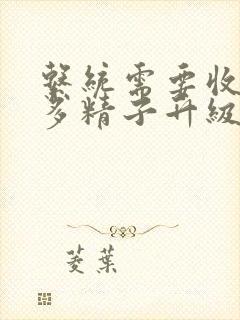 繫統需要收
多精子升級
菱葉